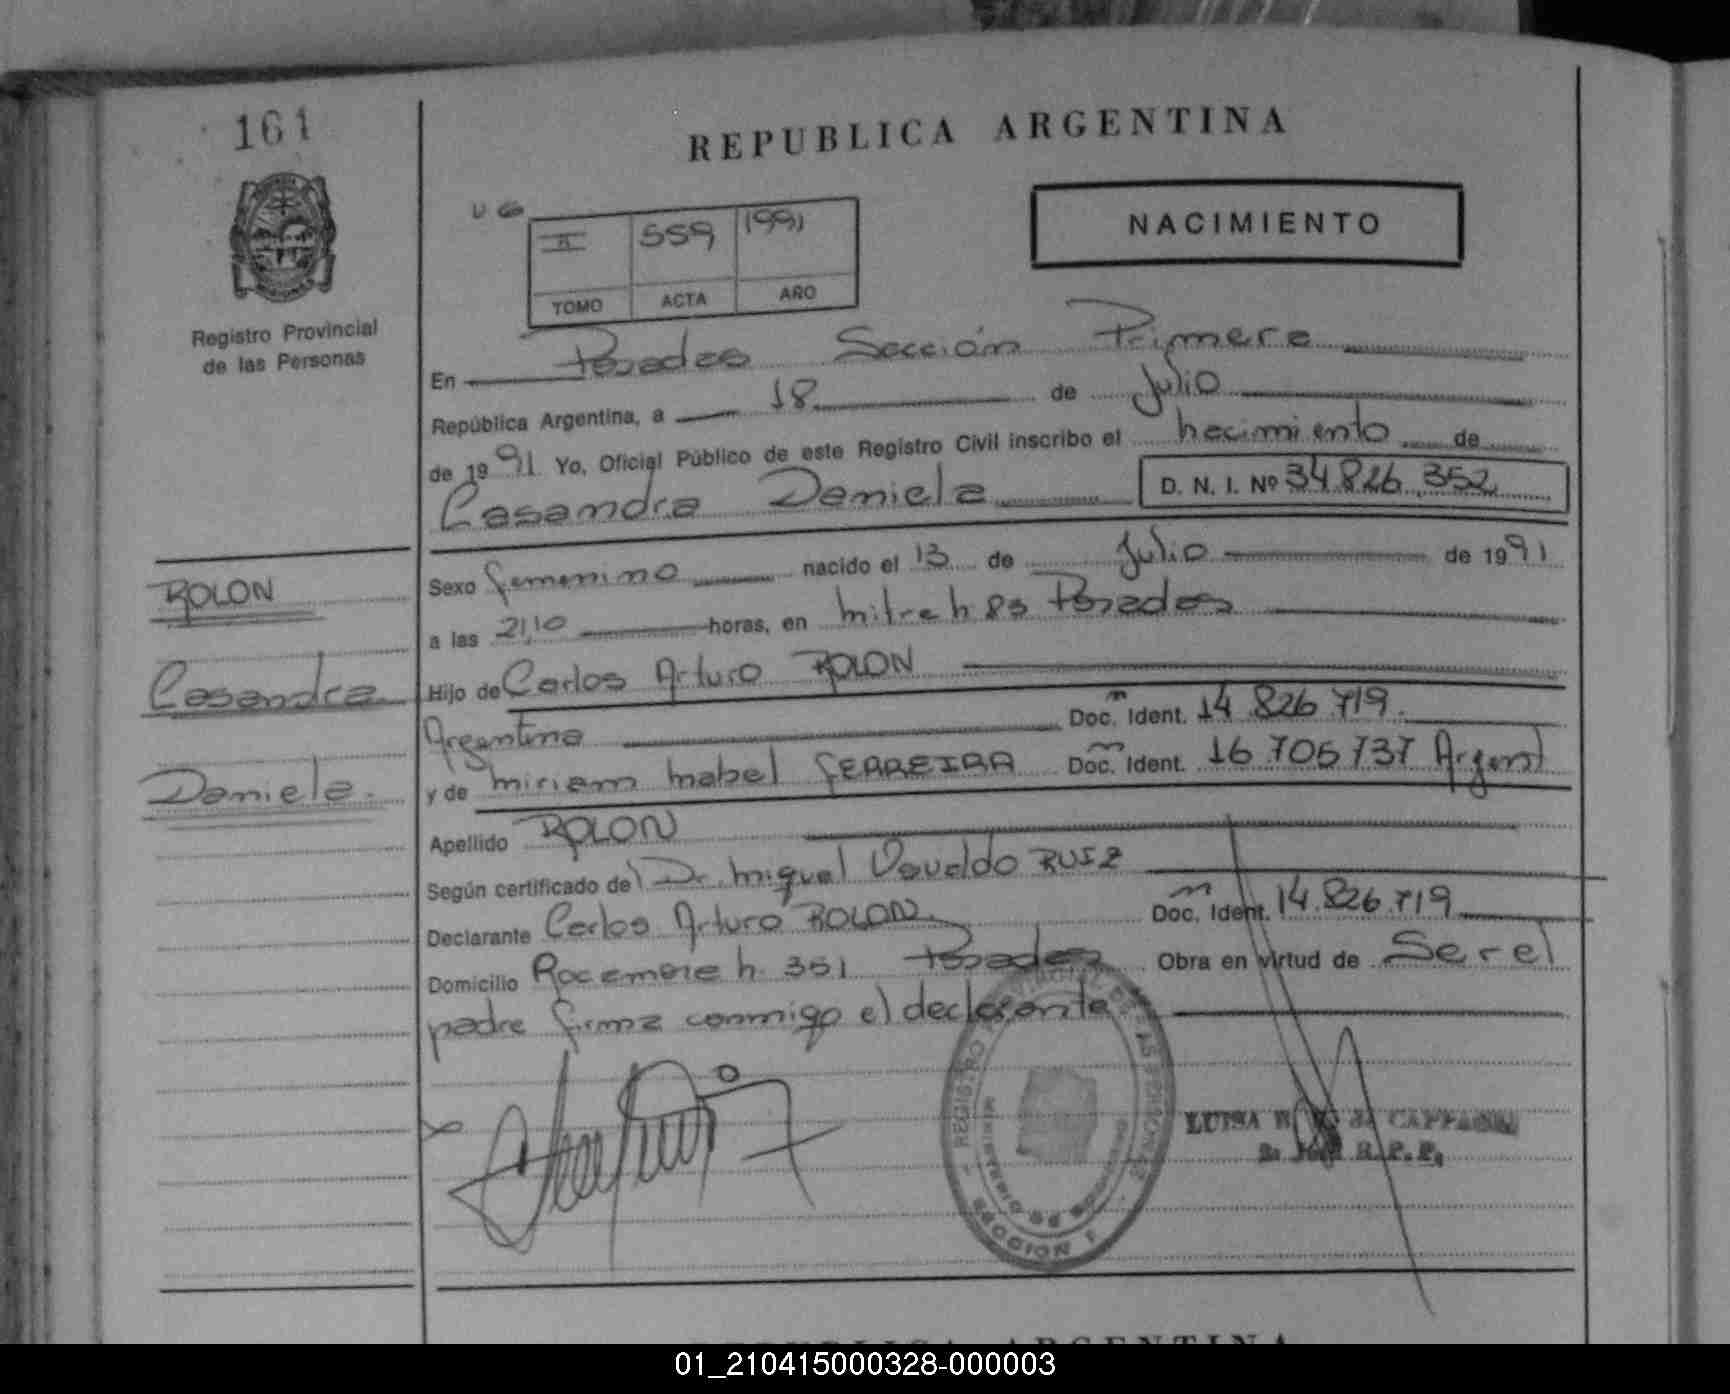 161
REPUBLICA ARGENTINA
NACIMIENTO
II 559 1991
TOMO ACTA AÑO
Registro Provincial
de las Personas
En Posadas Sección Primera
República Argentina, a 18 de Julio
de 1991 Yo, Oficial Público de este Registro Civil inscribo el nacimiento de
Casandra Daniela D. N. I. Nº 34.826.352
ROLON
Casandra
Daniela.
Sexo femenino nacido el 13 de Julio de 1991
a las 21,10 horas, en Mitre h 83 Posadas
Hijo de Carlos Arturo ROLON
Argentina Doc. Ident. 14.826.719.
y de Miriam Mabel FERREIRA Doc. Ident. 16.705.737 Argent
Apellido ROLON
Según certificado del Dr. Miguel Osvaldo RUIZ
Declarante Carlos Arturo ROLON. Doc. Ident. 14.826.719
Domicilio h. 351 Posadas Obra en virtud de Ser el
padre firma conmigo el declarante
REGISTRO PROVINCIAL DE LAS PERSONAS
SECCION 1
LUISA de
R. P. P.
REPUBLICA ARGENTINA
01_210415000328-000003